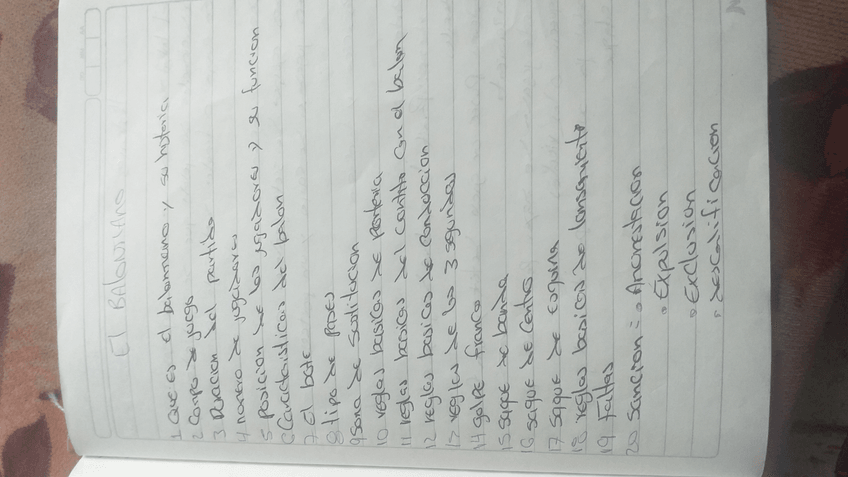 El BALONMANO
1 Que es el balonmano y su historia
2 Campo de juego
3 Duracion del partido
4 numero de jugadores
5 Posicion de los jugadores y su funcion
6 Caracteristicas del balon
7 El bote
8 tipo de Pases
9 sona de sustitucion
10 reglas basicas de Porteria
11 reglas basicas del contato con el balon
12 reglas basicas de conduccion
13 reglas de los 3 segundos
14 golpe franco
15 saque de banda
16 saque de centro
17 saque de esquina
18 reglas basicas de lansamiento
19 Faltas
20 Sancion = • Amonestacion
• Expulsion
• Exclusion
• Descalificacion